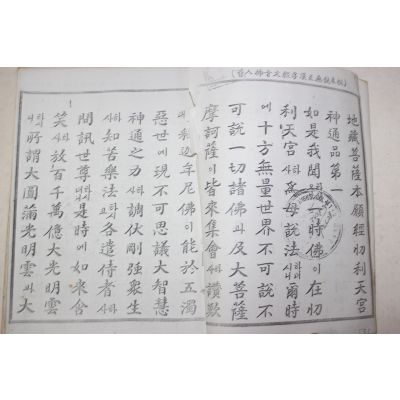 地藏菩薩本願經忉利天宮
神通品第一
如是我聞一時佛이在忉
利天宮하사爲母說法하시니爾時
에十方無量世界不可說不
可說一切諸佛과及大菩薩
摩訶薩이皆來集會하사讚歎
釋迦牟尼佛이能於五濁
惡世에現不可思議大智慧
神通之力하사調伏剛强衆生
하사知苦樂法各遣侍者하사
問訊世尊是時에如來含
笑하사放百千萬億大光明雲
하시니所謂大圓滿光明雲과大